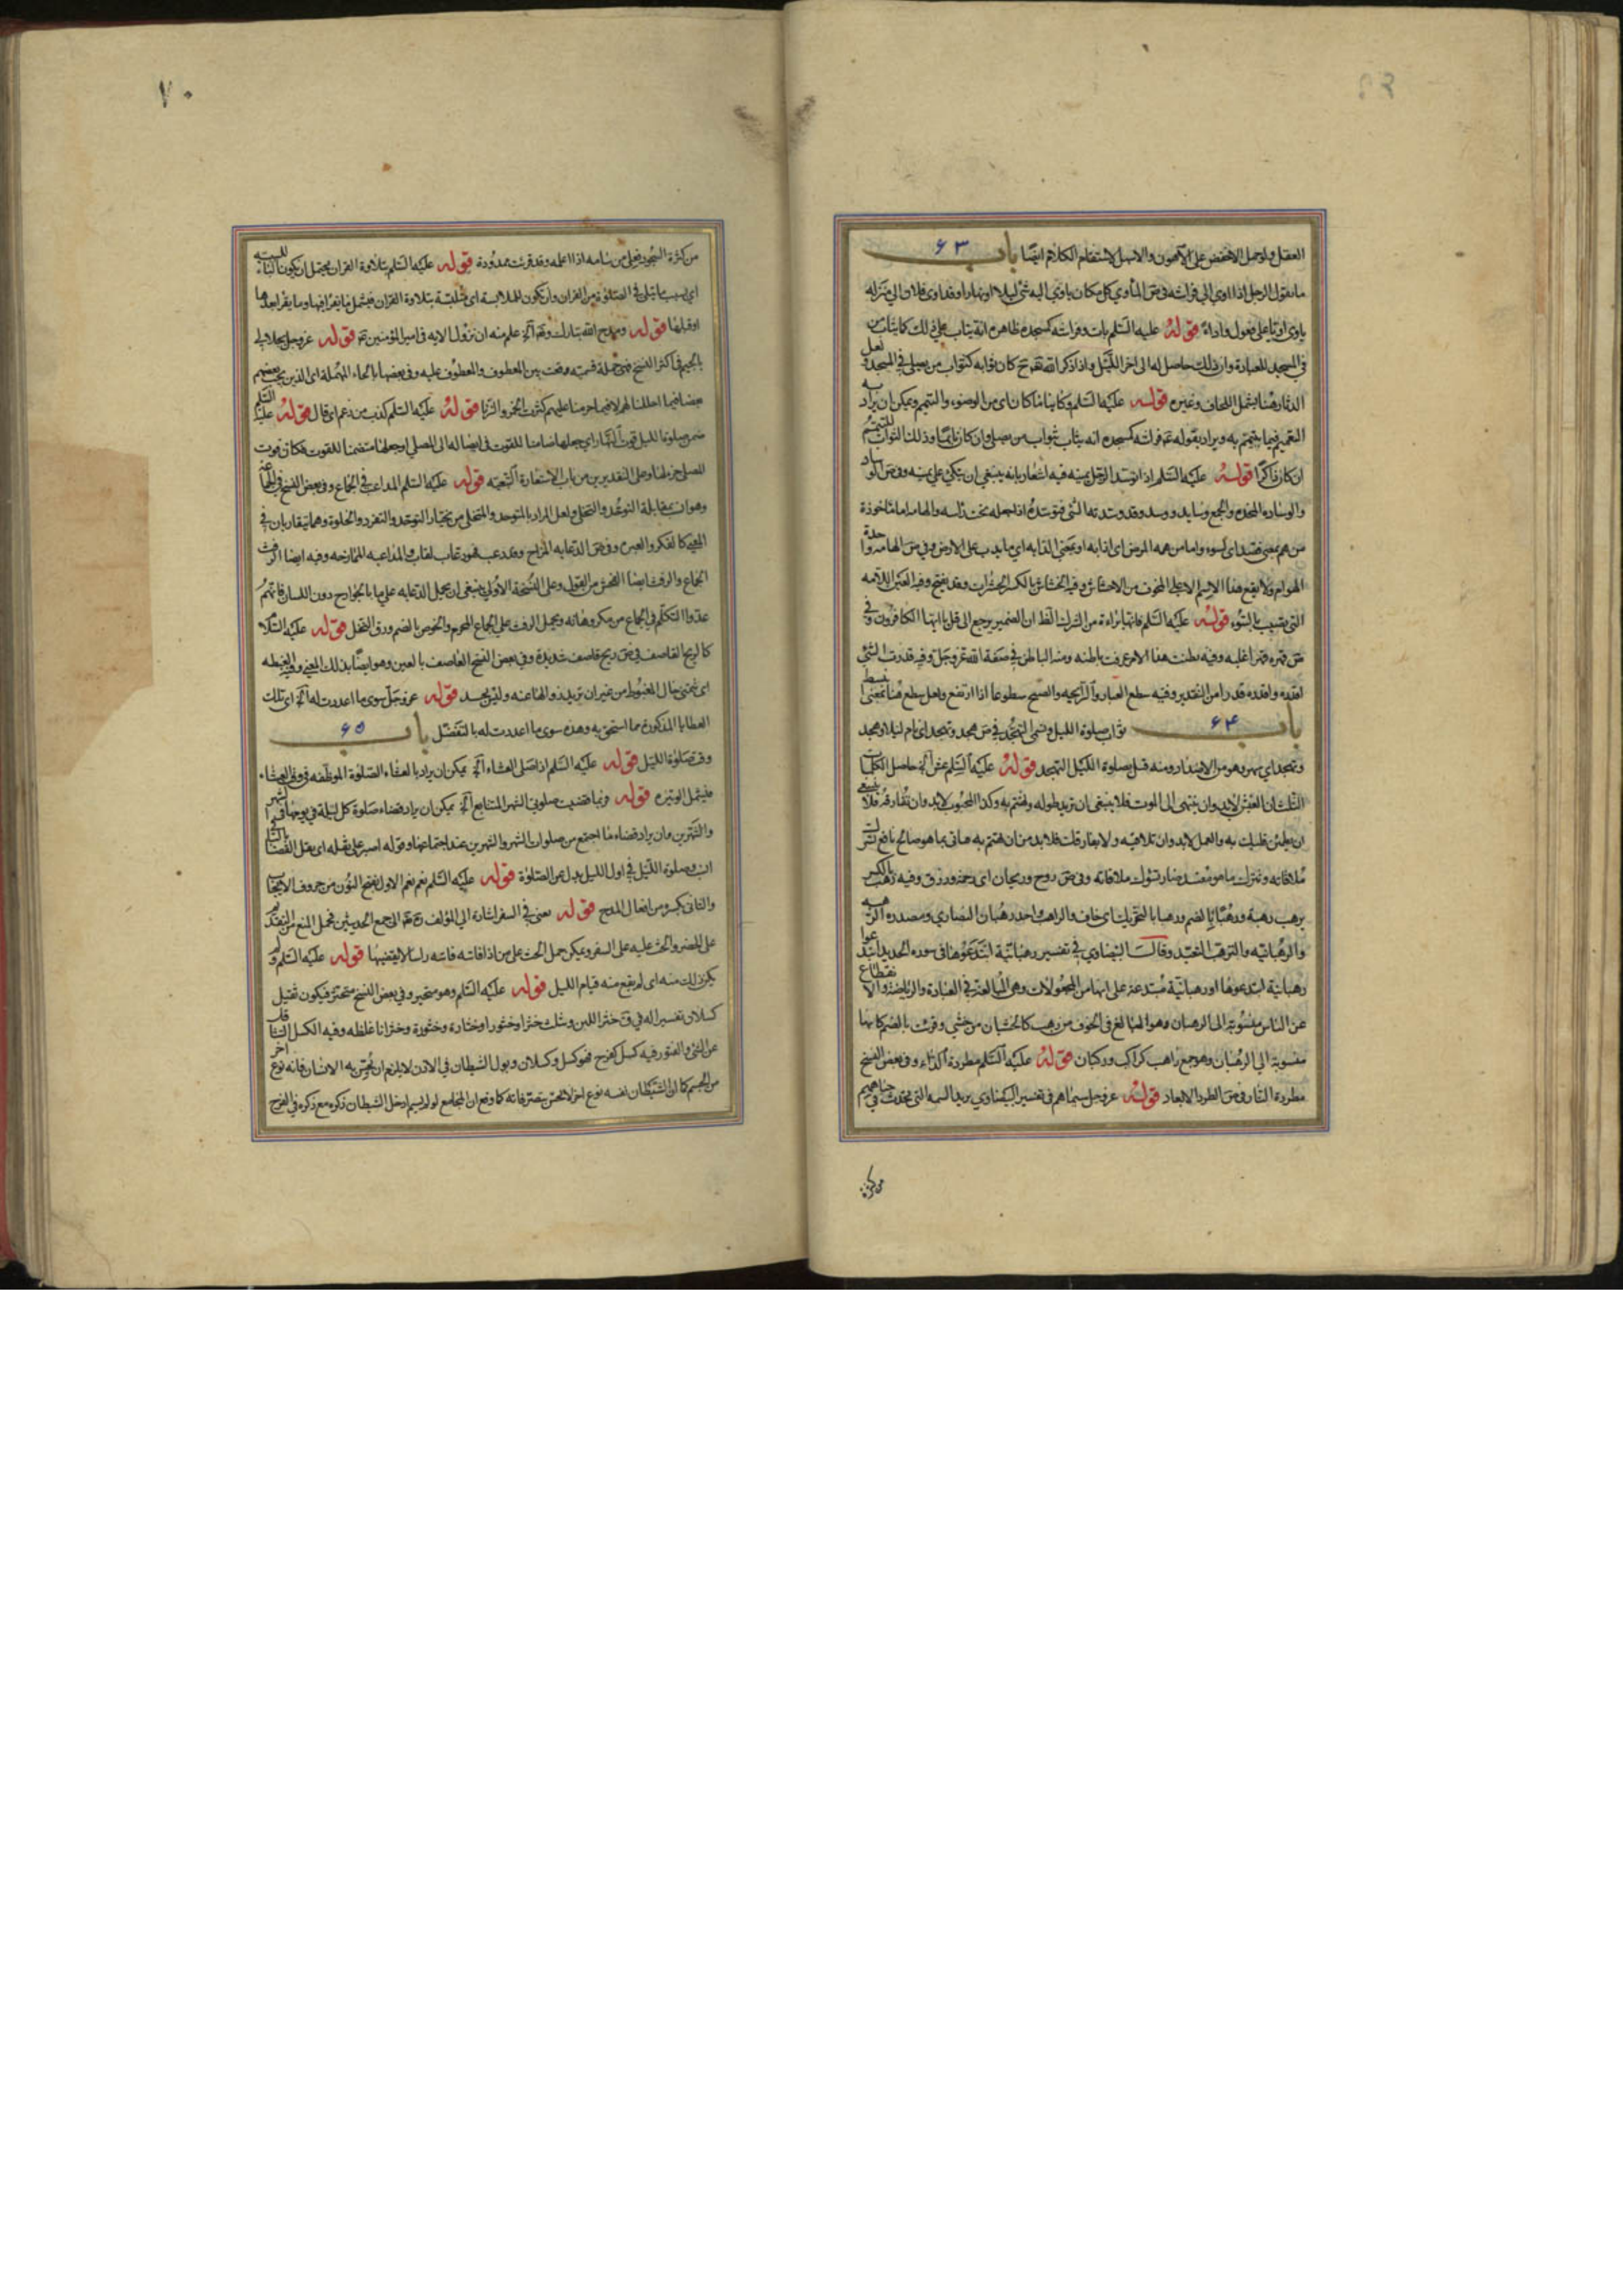 العقل ولو حمل الاخفض على الاهون والاسهل لاستقام الكلام ايضا باب ۶۳
ما يقول الرجل اذا اوى الى فراشه في ص المأوى كل مكان ياوي اليه شئ ليلا او نهارا وقد اوى فلان الى منزله
ياوى اويا على فعول واواء قوله عليه السلم بات وفراشه كمسجده ظاهره انه يثاب على ذلك كما يثاب من
في المسجد للعبادة وان ذلك حاصل له الى اخر الليل واذا ذكر الله تع كان ثوابه كثواب من يصلى في المسجد و لعل
الدثار هنا يشمل اللحاف وغيره قوله عليه السلم وكائنا ما كان اى من الوضوء والتيمم ويمكن ان يراد به
التعميم فيما يتيمم به ويراد بقوله فراشه كمسجده انه يثاب ثواب من يصلى وان كان نائما وذلك الثواب للتيمم
ان كان ذاكرا قوله عليه السلم اذا توسد الرجل يمينه فيه اشعار بانه ينبغي ان يتكئ على يمينه وفي ص الوساد
والوسادة المخدة والجمع وسايد ووسد وقد وسدته الشئ فتوسده اذا جعله تحت راسه والهامة اما ماخوذة
من هم بمعنى قصد اى لسوء واما من همه المرض اى اذابه او بمعنى الدابة اى ما يدب على الارض وفي ص الهامة واحدة
الهوام ولا يقع هذا الاسم الا على المخوف من الاحناش وفيه الخشاش بالكسر الحشرات وقد يفتح وفيه العين اللامة
التى تصيب بالسوء قوله عليه السلم فانها براءة من الشرك الظ ان الضمير يرجع الى قل يا ايها الكافرون و في
ص قهره قهرا غلبه وفيه بطنت هذا الامر عرفت باطنه ومنه الباطن في صفة الله عز وجل وفيه قدرت الشئ
اقدره واقدره قدرا من التقدير وفيه سطع الغبار والرايحة والصبح سطوعا اذا ارتفع ولعل سطع هنا بمعنى بسط
باب ۶۴ ثواب صلوة الليل وتسمى التهجد في ص هجد وتهجد اى نام ليلا وهجد
وتهجد اى سهر وهو من الاضداد ومنه قيل لصلوة الليل التهجد قوله عليه السلم عش الخ حاصل الكلمات
الثلث ان العيش لابد وان ينتهى الى الموت فلا ينبغى ان تريد طوله وتهتم به وكذا المحبوب لابد وان تفارقه فلا ينبغى
ان يطمئن قلبك به والعمل لابد وان تلاقيه ولا يفارقك فلابد من ان تهتم به فتاتى بما هو صالح نافع تسر
ملاقاته وتترك ما هو مفسد ضار تسوءك ملاقاته وفي ص روح وريحان اى رحمة ورزق وفيه رهب بالكسر
يرهب رهبة ورهبا بالضم ورهبا بالتحريك اى خاف والراهب واحد رهبان النصارى ومصدره الرهبة
والرهبانية والترهب التعبد وقال البيضاوى في تفسير رهبانية ابتدعوها في سورة الحديد ابتدعوا
رهبانية ابتدعوها او رهبانية مبتدعة على انها من المجعولات وهى المبالغة في العبادة والرياضة والانقطاع
عن الناس منسوبة الى الرهبان وهو المبالغ في الخوف من رهب كالخشيان من خشى وقرئت بالضم كانها
منسوبة الى الرهبان وهو جمع راهب كراكب وركبان قوله عليه السلم مطردة الداء وفي بعض النسخ
مطردة الداء في ص الطرد الابعاد قوله عز وجل سيماهم في تفسير البيضاوى يريد السمة التى تحدث في جباههم
من كثرة
۷۰
من كثرة السجود فعلى من سامه اذا اعلمه وقد قرئت ممدودة قوله عليه السلم بتلاوة القران يحتمل ان يكون الباء للسببية
اى بسبب ما يتلى في الصلوة من القران وان يكون للملابسة اى متلبسة بتلاوة القران فيشمل ما يقرا فيها وما يقرا بعدها
او قبلها قوله ومدح الله تبارك وتع الخ علم منه ان نزول الاية في امير المؤمنين ع قوله عز وجل بجلالى
بالجيم في اكثر النسخ فهى جملة قسمية وقعت بين المعطوف والمعطوف عليه وفي بعضها بالحاء المهملة اى الذين يحب بعضهم
بعضا فيما احللنا لهم لا فيما حرمنا عليهم كشرب الخمر والزنا قوله عليه السلم كذب من زعم اى قال قوله عليه السلم
ضمن صلوة الليل قوت النهار اى جعلها ضامنا للقوت في ايصاله الى المصلى او جعلها متضمنا للقوت فكان قوت
المصلى جزءها وعلى التقديرين من باب الاستعارة التبعية قوله عليه السلم المداعب في الجماع وفي بعض النسخ في الجماعة
وهو انسب بمقابلة التوحد والتخلى ولعل المراد بالمتوحد والمتخلى من يختار التوحد والتفرد والخلوة وهما يتقاربان في
المعنى كالفكر والعبرة وفي ص الدعابة المزاح وقد دعب فهو دعاب لعاب والمداعبة الممازحة وفيه ايضا الرفث
الجماع والرفث ايضا الفحش من القول وعلى النسخة الاولى ينبغى ان يحمل الدعابة على ما بالجوارح دون اللسان فانهم
عدوا التكلم في الجماع من مكروهاته ويحمل الرفث على الجماع المحرم والخوص بالضم ورق النخل قوله عليه السلام
كالريح القاصف في ص ريح قاصف شديدة وفي بعض النسخ العاصف بالعين وهو ايضا بذلك المعنى وفيه الغبطة
اى تتمنى حال المغبوط من غير ان تريد زوالها عنه وليس بحسد قوله عز وجل سوى ما اعددت له الخ اى تلك
العطايا المذكورة مما استحق به وهذه سوى ما اعددت له بالتفضل باب ۶۵
وقت صلوة الليل قوله عليه السلم اذا صلى العشاء الخ يمكن ان يراد بالعشاء الصلوة الموظفة في وقت العشاء
فيشمل الوتيرة قوله وربما قضيت صلوتى الشهر المتتابع الخ يمكن ان يراد قضاء صلوة كل ليلة في يومها في الشهر
والشهرين وان يراد قضاء ما اجتمع من صلوات الشهر والشهرين عند اجتماعها وقوله اصبر على ثقله اى ثقل القضاء
صلوة الليل في اول الليل بدل من الصلوة قوله عليه السلم نعم نعم الاول بفتح النون من حروف الايجاب
والثانى بكسره من افعال المدح قوله يعنى في السفر اشارة الى المؤلف ره الى جمع الحديثين فحمل المنع من التقديم
على الحضر والحث عليه على السفر ويمكن حمل الحث على من اذا فاتته فاتته راسا لا يقضيها قوله عليه السلم ولم
يكن ذلك منه اى لم يقع منه قيام الليل قوله عليه السلم وهو متخثر وفي بعض النسخ متحير فيكون ثقيل
كسلان تفسيرا له في ق خثر اللبن ويثلث خثرا وخثورا وخثارة وخثورة وخثرانا غلظ وفيه الكسل التثاقل
عن الشئ والفتور فيه كسل كفرح فهو كسل وكسلان وبول الشيطان في الاذن لا يلزم ان يحس به الانسان فانه نوع اخر
من الجسم كما ان الشيطان نفسه نوع اخر لا تحس بتصرفاته كما وقع ان المجامع لو لم يسم ادخل الشيطان ذكره مع ذكره في الفرج